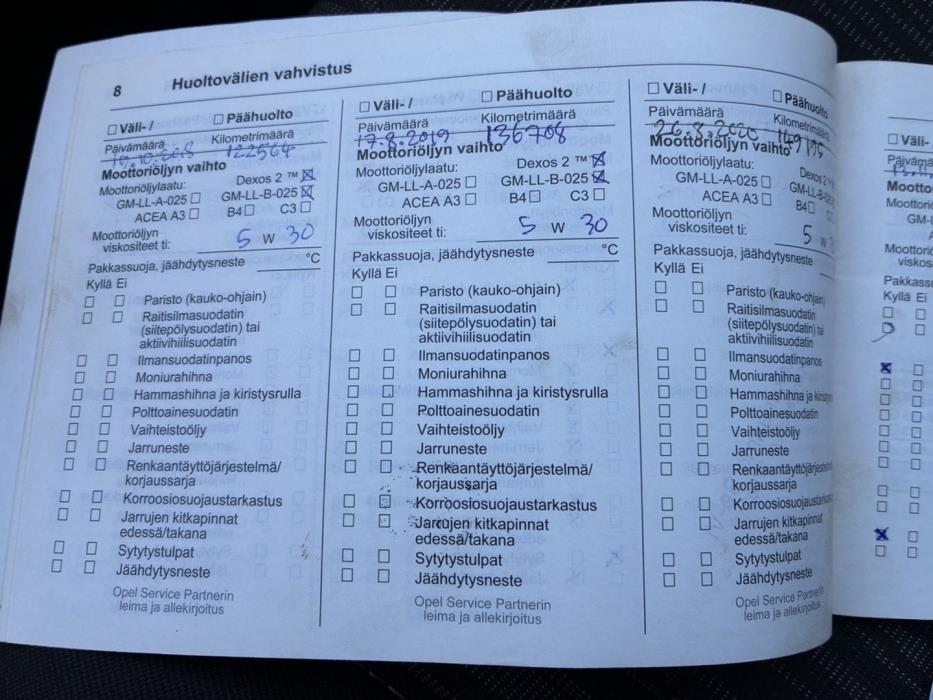 8 Huoltovälien vahvistus
☐ Väli- / ☐ Päähuolto
Päivämäärä Kilometrimäärä
19.10.2018 122564
Moottoriöljyn vaihto
Moottoriöljylaatu: Dexos 2 ™ ☒
GM-LL-A-025 ☐ GM-LL-B-025 ☒
ACEA A3 ☐ B4 ☐ C3 ☐
Moottoriöljyn
viskositeet ti: 5 W 30
Pakkassuoja, jäähdytysneste °C
Kyllä Ei
☐ ☐ Paristo (kauko-ohjain)
☐ ☐ Raitisilmasuodatin
(siitepölysuodatin) tai
aktiivihiilisuodatin
☐ ☐ Ilmansuodatinpanos
☐ ☐ Moniurahihna
☐ ☐ Hammashihna ja kiristysrulla
☐ ☐ Polttoainesuodatin
☐ ☐ Vaihteistoöljy
☐ ☐ Jarruneste
☐ ☐ Renkaantäyttöjärjestelmä/
korjaussarja
☐ ☐ Korroosiosuojaustarkastus
☐ ☐ Jarrujen kitkapinnat
edessä/takana
☐ ☐ Sytytystulpat
☐ ☐ Jäähdytysneste
Opel Service Partnerin
leima ja allekirjoitus
☐ Väli- / ☐ Päähuolto
Päivämäärä Kilometrimäärä
17.8.2019 136708
Moottoriöljyn vaihto
Moottoriöljylaatu: Dexos 2 ™ ☒
GM-LL-A-025 ☐ GM-LL-B-025 ☒
ACEA A3 ☐ B4 ☐ C3 ☐
Moottoriöljyn
viskositeet ti: 5 W 30
Pakkassuoja, jäähdytysneste °C
Kyllä Ei
☐ ☐ Paristo (kauko-ohjain)
☐ ☐ Raitisilmasuodatin
(siitepölysuodatin) tai
aktiivihiilisuodatin
☐ ☐ Ilmansuodatinpanos
☐ ☐ Moniurahihna
☐ ☐ Hammashihna ja kiristysrulla
☐ ☐ Polttoainesuodatin
☐ ☐ Vaihteistoöljy
☐ ☐ Jarruneste
☐ ☐ Renkaantäyttöjärjestelmä/
korjaussarja
☐ ☐ Korroosiosuojaustarkastus
☐ ☐ Jarrujen kitkapinnat
edessä/takana
☐ ☐ Sytytystulpat
☐ ☐ Jäähdytysneste
Opel Service Partnerin
leima ja allekirjoitus
☐ Väli- / ☐ Päähuolto
Päivämäärä Kilometrimäärä
26.8.2020 149195
Moottoriöljyn vaihto
Moottoriöljylaatu: Dexos 2
GM-LL-A-025 ☐ GM-LL-B-025
ACEA A3 ☐ B4 ☐
Moottoriöljyn
viskositeet ti: 5 W
Pakkassuoja, jäähdytysneste
Kyllä Ei
☐ ☐ Paristo (kauko-ohjain)
☐ ☐ Raitisilmasuodatin
(siitepölysuodatin) tai
aktiivihiilisuodatin
☐ ☐ Ilmansuodatinpanos
☐ ☐ Moniurahihna
☐ ☐ Hammashihna ja kiristysrulla
☐ ☐ Polttoainesuodatin
☐ ☐ Vaihteistoöljy
☐ ☐ Jarruneste
☐ ☐ Renkaantäyttöjärjestelmä/
korjaussarja
☐ ☐ Korroosiosuojaustarkastus
☐ ☐ Jarrujen kitkapinnat
edessä/takana
☐ ☐ Sytytystulpat
☐ ☐ Jäähdytysneste
Opel Service Partnerin
leima ja allekirjoitus
☐ Väli-
Kyllä Ei